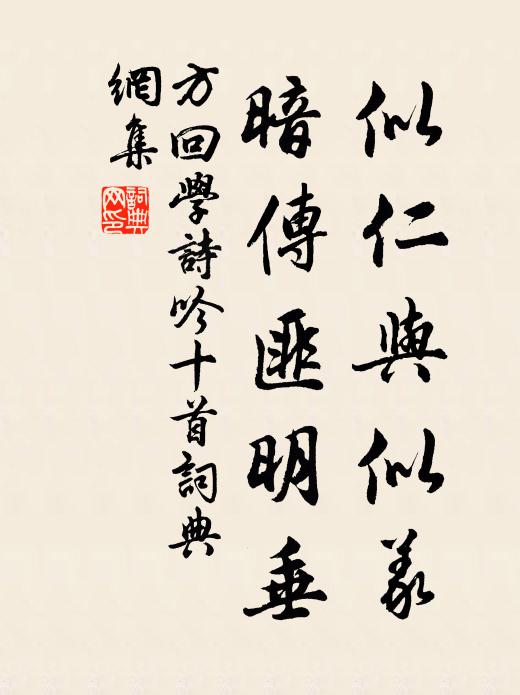 似仁與似義
暗傳匪明垂
方回學詩吟十首詞典
網集
詞典網印